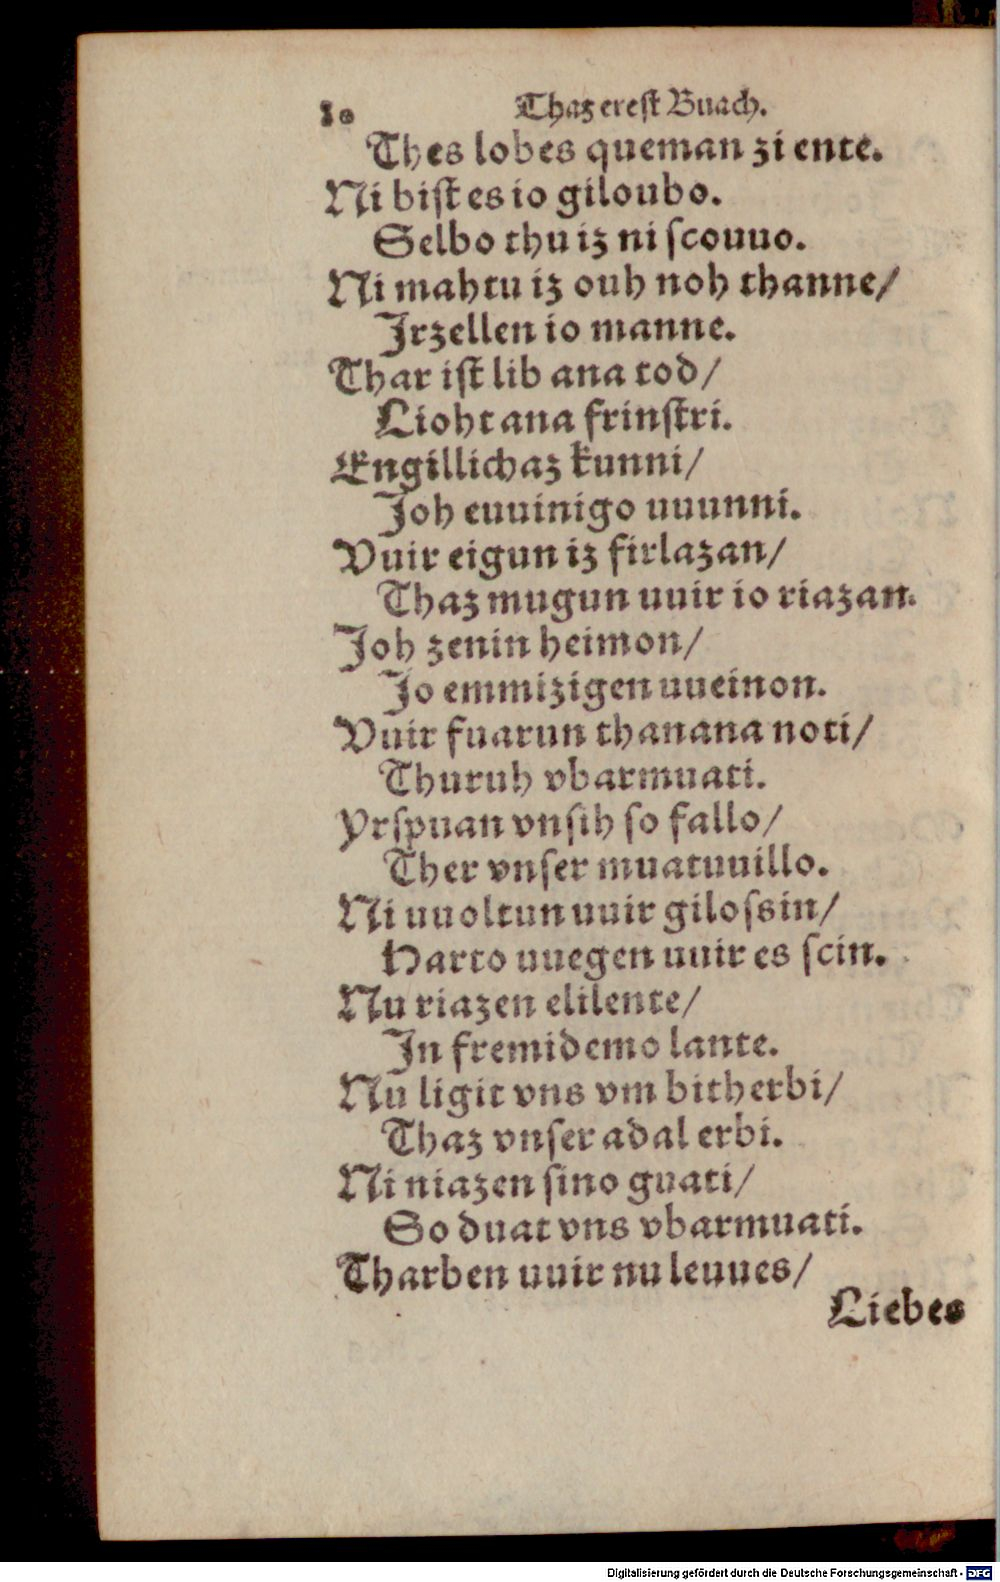 80 Thaz erest Buach.
Thes lobes queman zi ente.
Ni bist es io giloubo.
Selbo thu iz ni scouuo.
Ni mahtu iz ouh noh thanne/
Irzellen io manne.
Thar ist lib ana tod/
Lioht ana frinstri.
Engillichaz kunni/
Joh euuinigo uuunni.
Vuir eigun iz firlazan/
Thaz mugun uuir io riazan.
Joh zenin heimon/
Jo emmizigen uueinon.
Vuir fuarun thanana noti/
Thuruh vbarmuati.
Yrspuan vnsih so fallo/
Ther vnser muatuuillo.
Ni uuoltun uuir gilossin/
Harto uuegen uuir es scin.
Nu riazen elilente/
In fremidemo lante.
Nu ligit vns vm bitherbi/
Thaz vnser adal erbi.
Ni niazen sino guati/
So duat vns vbarmuati.
Tharben uuir nu leuues/
Liebes
Digitalisierung gefördert durch die Deutsche Forschungsgemeinschaft - DFG